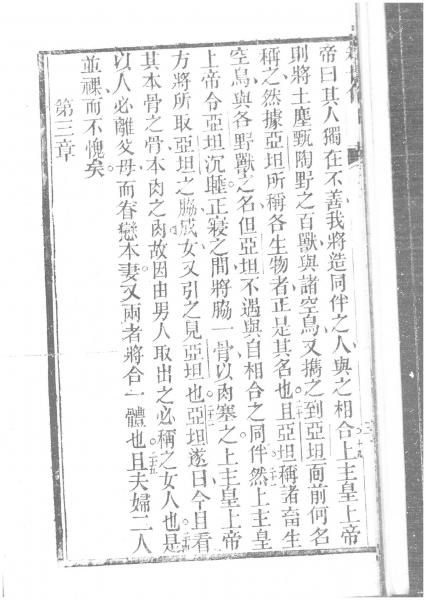 帝曰其人獨在不善我將造同伴之人與之相合上主皇上帝
則將土塵甄陶野之百獸與諸空鳥又攜之到亞坦面前何名
稱之然據亞坦所稱各生物者正是其名也且亞坦稱諸畜生
空鳥與各野獸之名但亞坦不遇與自相合之同伴然上主皇
上帝令亞坦沉睡正寢之間將脇一骨以肉塞之上主皇上帝
方將所取亞坦之脇成女又引之見亞坦也亞坦遂曰今且看
其本骨之骨本肉之肉故因由男人取出之必稱之女人也是
以人必離父母而眷戀本妻又兩者將合一體也且夫婦二人
並裸而不愧矣
第三章